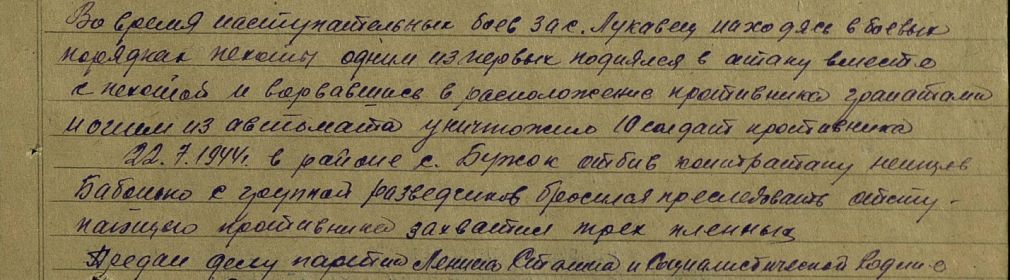 Во время наступательных боев за с. Лукавец находясь в боевых
порядках пехоты одним из первых поднялся в атаку вместе
с пехотой и ворвавшись в расположение противника гранатами
и огнем из автомата уничтожило 10 солдат противника
22.7.1944г. в районе с. Бужок отбив контратаку немцев
Баболько с группой разведчиков бросился преследовать отсту-
пающего противника захватил трех пленных
Предан делу партии Ленина Сталина и Социалистической Родине